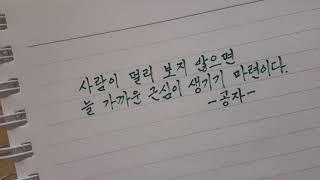 사람이 멀리 보지 않으면
늘 가까운 근심이 생기기 마련이다.
-공자-